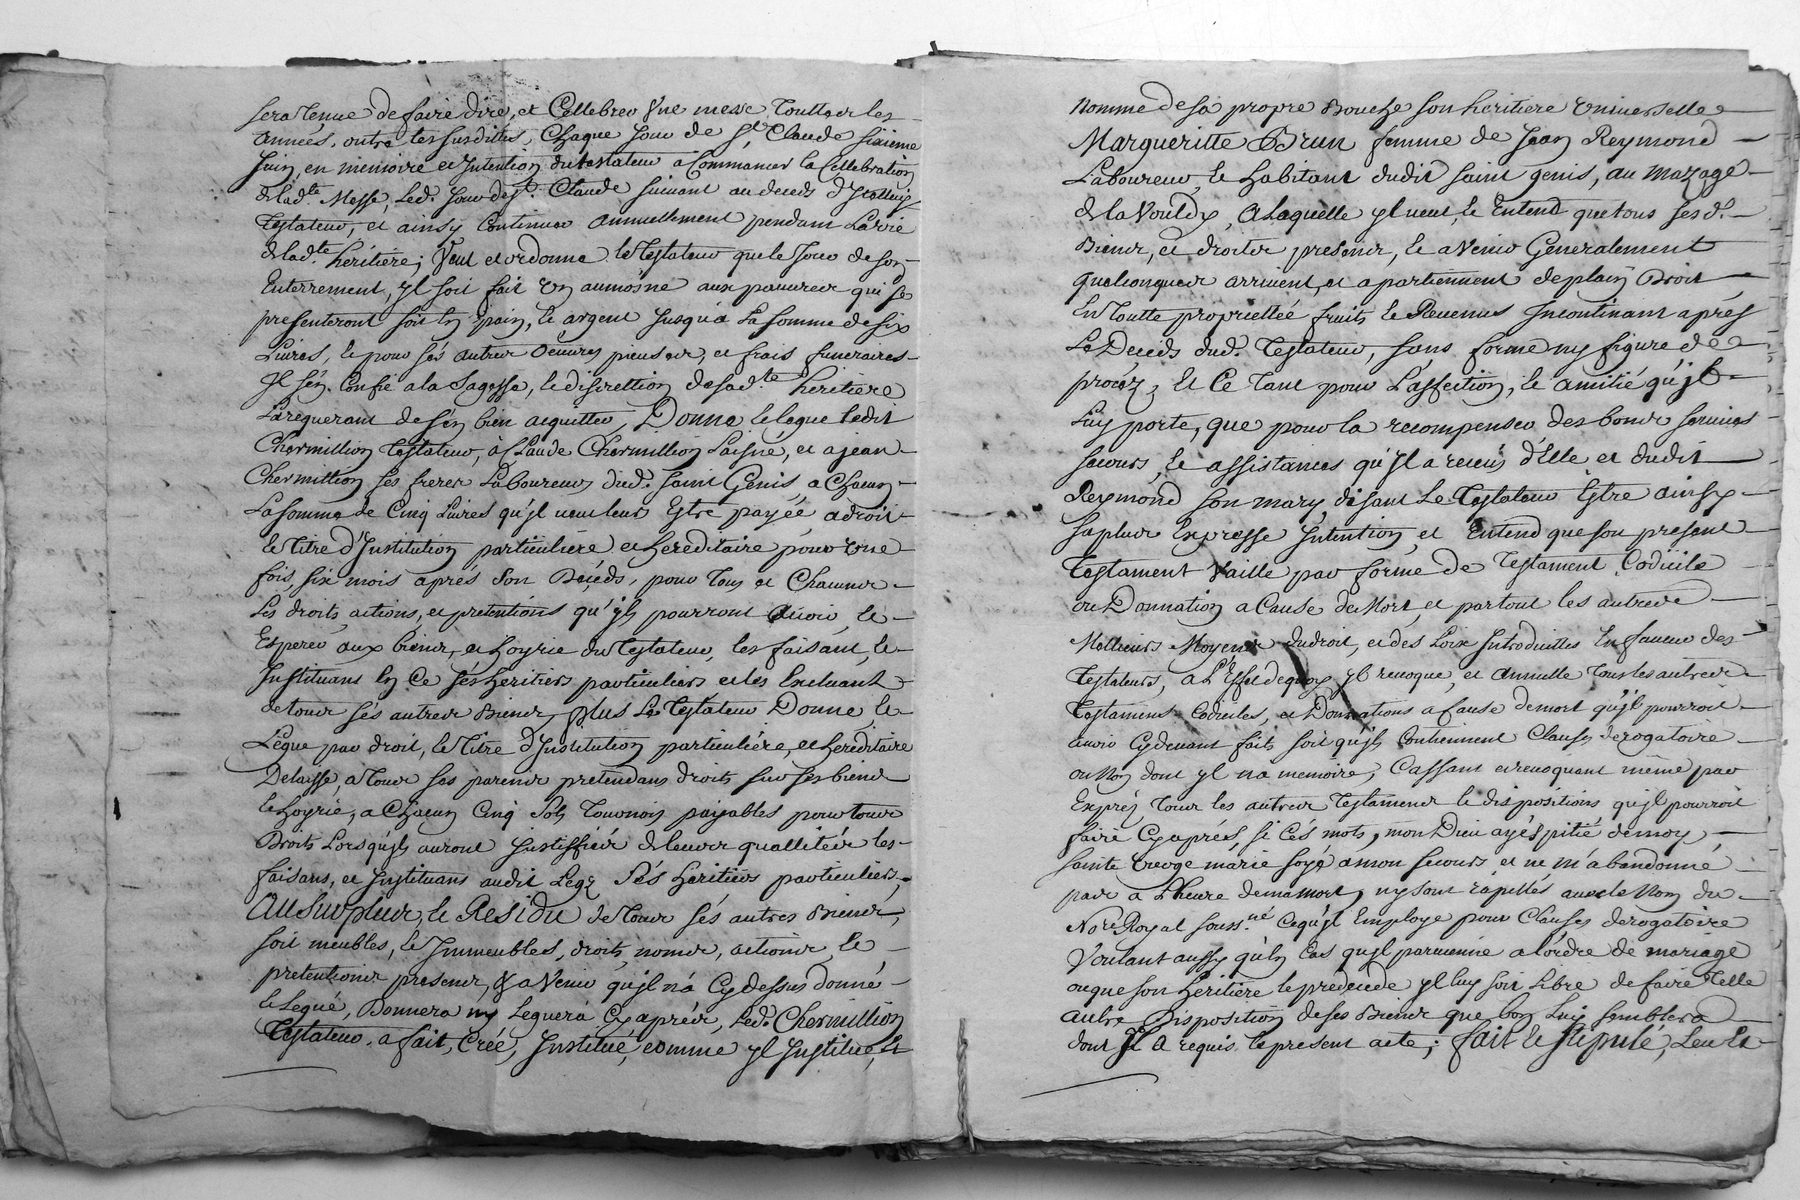 sera tenue de faire dire, et Cellebrer Vne messe Touttes les
années, outre les susdittes, Chaque Jour de St. Claude sixieme
Juin, en memoire et Intention du testateur a Commancer la Cellebration
de lad.te Messe, led. Jour de St. Claude suivant au deceds d'Jcelluy
Testateur, et ainsy Continuer annuellement pendant La vie
de lad.te héritiere; Veut et ordonne le Testateur que le Jour de son
Enterrement, yl soit fait Vn aumosne aux pauvres qui se
presenteront soit En pain, et argent Jusqu'a La somme de six
Livres, et pour sés autres Oeuvres pieuses, et frais funeraires
Jl s'én Confie a la Sagesse, et disirettion de sad.te héritiere
La requerant de s'én bien acquitter, Donne et legue ledit
Chermillion Testateur, à Claude Chermillion Laisné, et a jean
Chermillion ses freres Laboureurs dud. saint Genis a Chacun
La somme de Cinq Livres qu'jl veut leurs Estre payéé, a droit
et Titre d'Institution particuliére et hereditaire pour vne
fois, six mois aprés son Decéds, pour Tous et Chacuns
Les droits, actions, et pretentions qu'jls pourront avoir, et
Esperer aux biens, et hoyrie du Testateur, les faisant, et
Jnstituant En Ce sés heritiers particuliers et les Excluant
de tous sés autres Biens, plus Le Testateur Donne, et
Légue par droit, et Titre d'Jnstitution particuliére, et hereditaire
Delaisse, a tous sas parents pretendans droits sur ses biens
et hoyrie, a Chacun Cinq sols Tournois payables pour tous
Droits Lorsqu'jls auront justiffiés de leurs quallités les
faisans, et Jnstituans audit Legs sés heritiers particuliers,
Au surplus, et Residu de Tous sés autres Biens,
soit meubles, et Jmmeubles, droits, noms, actions, et
pretentions presens, & a Venir qu'jl n'a Cy dessus donné
et Legué, Donnera ny Leguera Cy aprés, led. Chermillion
Testateur a fait, Créé, Jnstitué, comme yl Jnstitue, et
Nomme de sa propre Bouche son heritiere Vniverselle
Margueritte Brun femme de Jean Reymond
Laboureur, et habitant dudit saint genis, au mazage
de la Vouldy, a Laquelle yl veut, et Entend que tous ses d.
Biens, et droits presens, et a Venir Generalement
quelconques arrivent, et apartiennent de plain Droit
En Toutte propriettéé fruits et Revenus Jncontinant aprés
Le Deceds dud. Testateur, sans forme ny figure de
procéz, et Ce Tant pour L'affection, et amitié qu'jl
Luy porte, que pour la recompenser des bons services
secours, et assistances qu'jl a reçus d'Elle et dudit
Reymond son mary, disant Le Testateur Estre ainsy
sa plus Expresse Jntention, et Entend que son present
Testament Vaille par forme de Testament, Codicile
ou Donnation a Cause de Mort, et par tout les autres
Mellieurs Moyens du droit, et des Loix Jntroduittes En faveur des
Testateurs, a L'Effet de quoy yl revoque, et annulle Tous les autres
Testamens Codiciles, et Donnations a Cause de mort qu'jl pourroit
avoir Cy devant faits soit qu'jls Contiennent Clauses derogatoire
ou Non dont yl n'a memoire, Cassant et revoquant même par
Exprés Tous les autres Testamens et dispositions qu'jl pourroit
faire Cy aprés, si Cés mots, mon Dieu ayés pitié de moy,
sainte vierge marie soyé a mon secours et ne m'abandonné
pas a L'heure de ma mort, ny sont rapellés avec le Nom du
No.re Royal souss.né Ce qu'jl Employe pour Clauses derogatoire
Voulant aussy qu'En Cas qu'jl parvienne a L'ordre de mariage
ou que son heritiere le predecede yl luy soit Libre de faire Telle
autre Disposition de ses Biens que bon Luy semblera
dont Jl a requis le present acte; fait et stipulé, Leu et